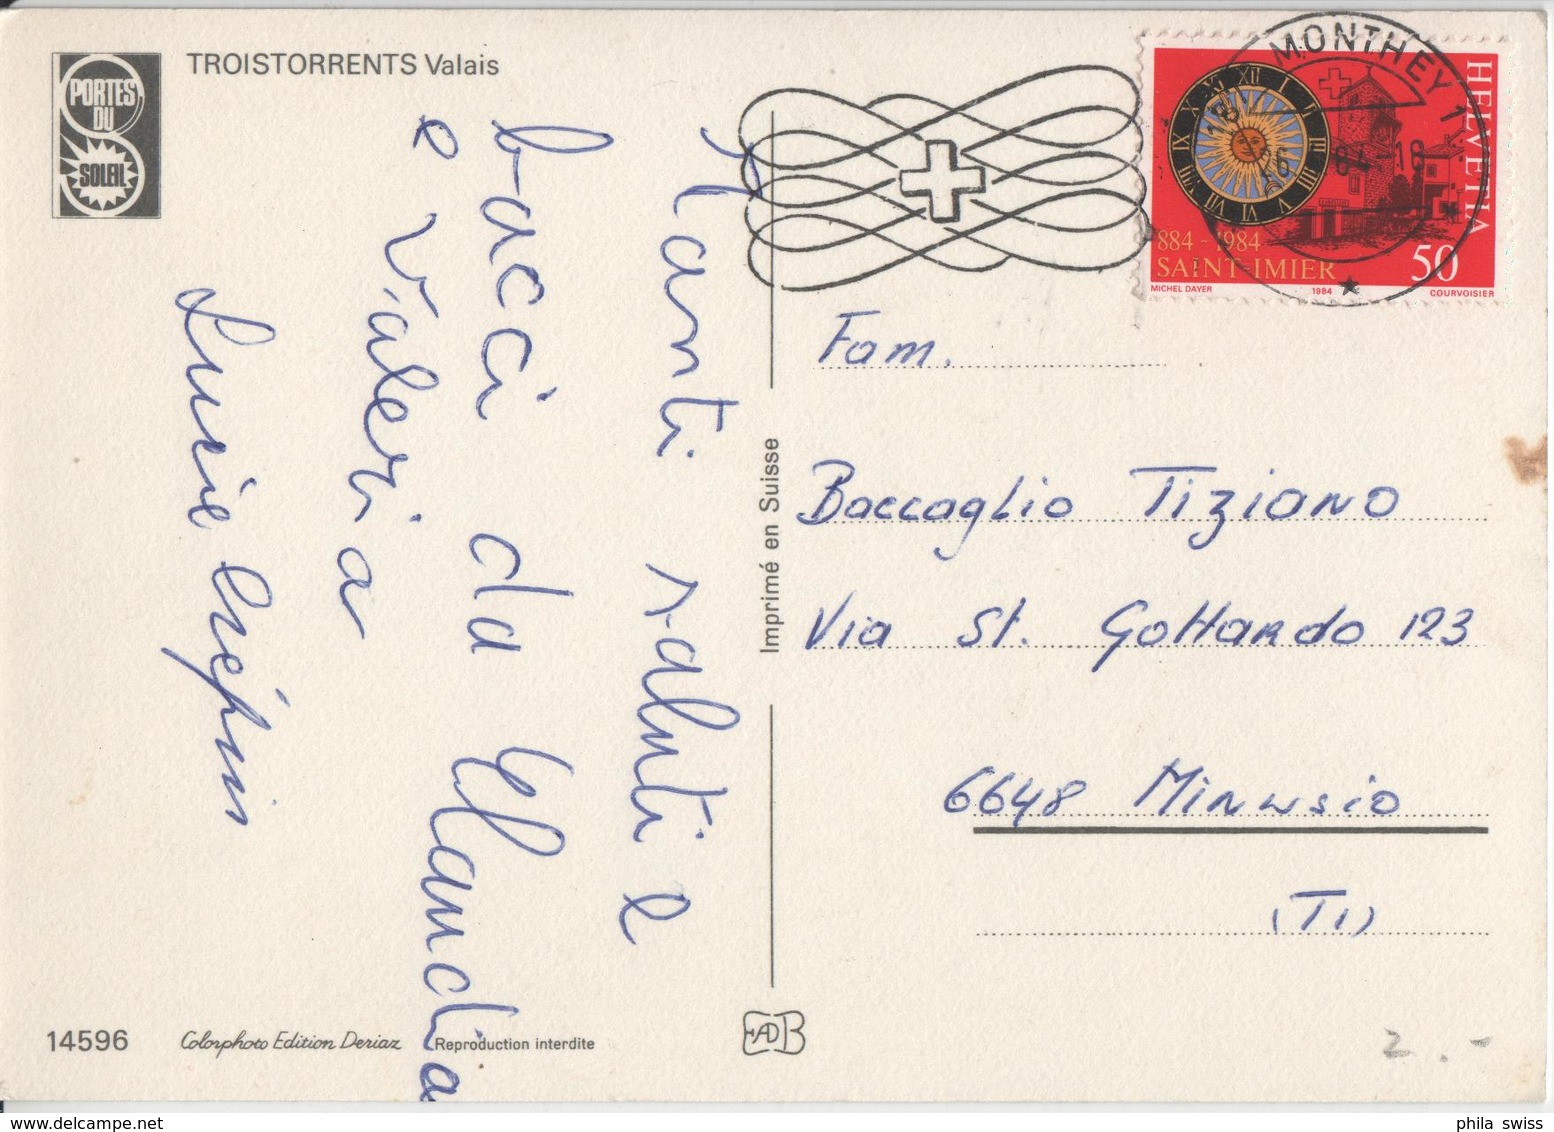 PORTES
DU
SOLEIL
TROISTORRENTS Valais
Tanti saluti e
bacci da Claudia
e Valeria
Imprimé en Suisse
MONTHEY 1
84-18
HELVETIA
884 - 1984
SAINT-IMIER
50
MICHEL DAYER
1984
COURVOISIER
Fam.
Baccaglio Tiziano
Via St. Gottardo 123
6648 Minusio
(TI)
14596
Colorphoto Edition Deriaz
Reproduction interdite
2.-
phila swiss